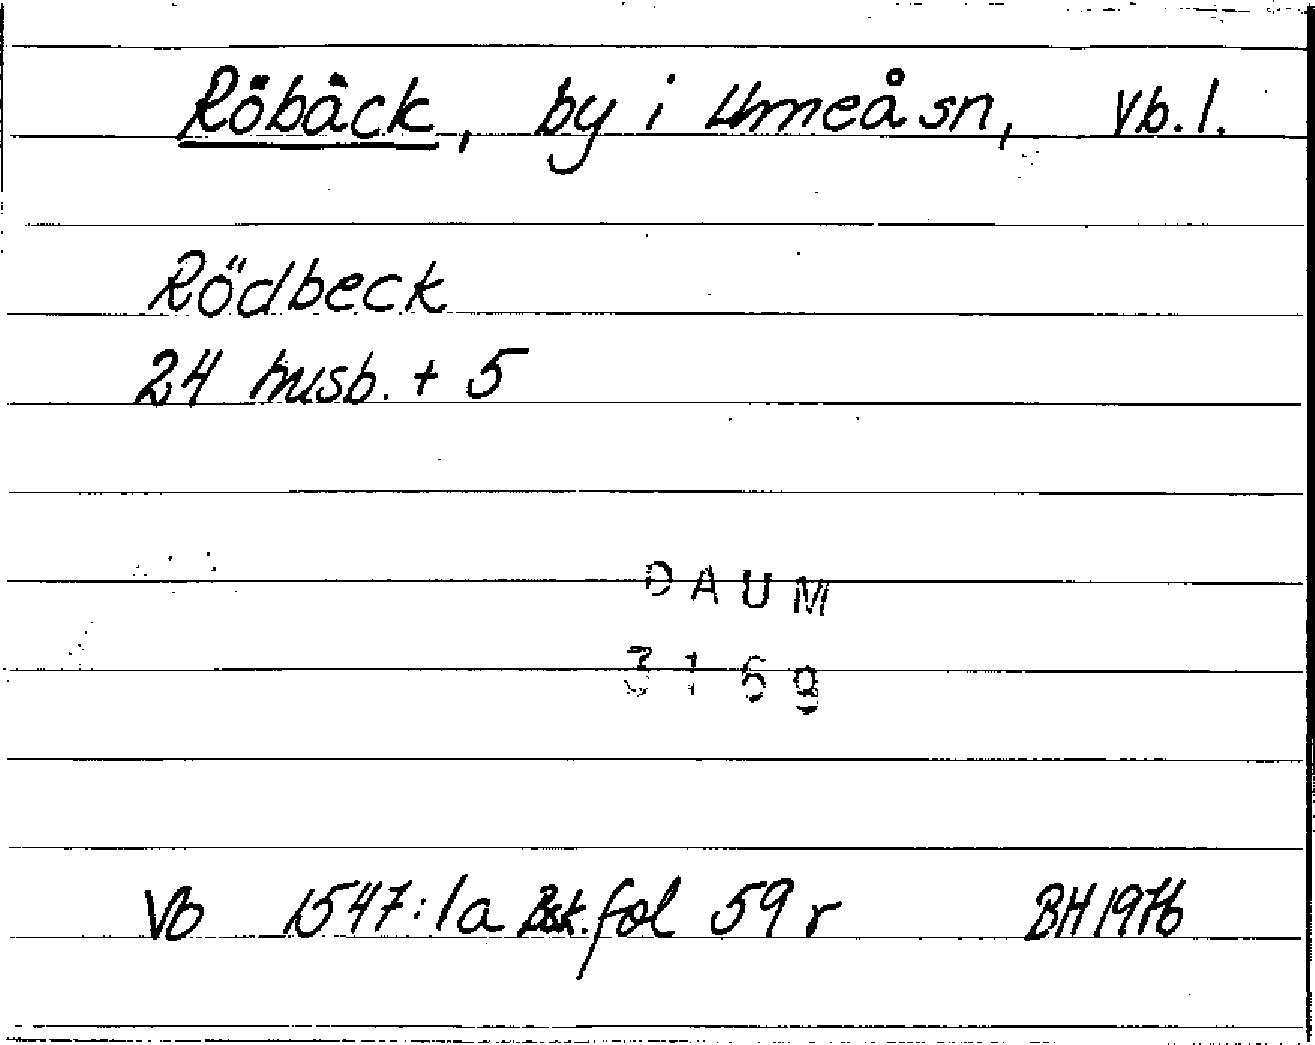 Röbäck, by i Umeå sn, Vb. l.
Rödbeck
24 husb. + 5
DAUM
3169
Vb 1547:1a Bsk. fol 59 r BH 1976